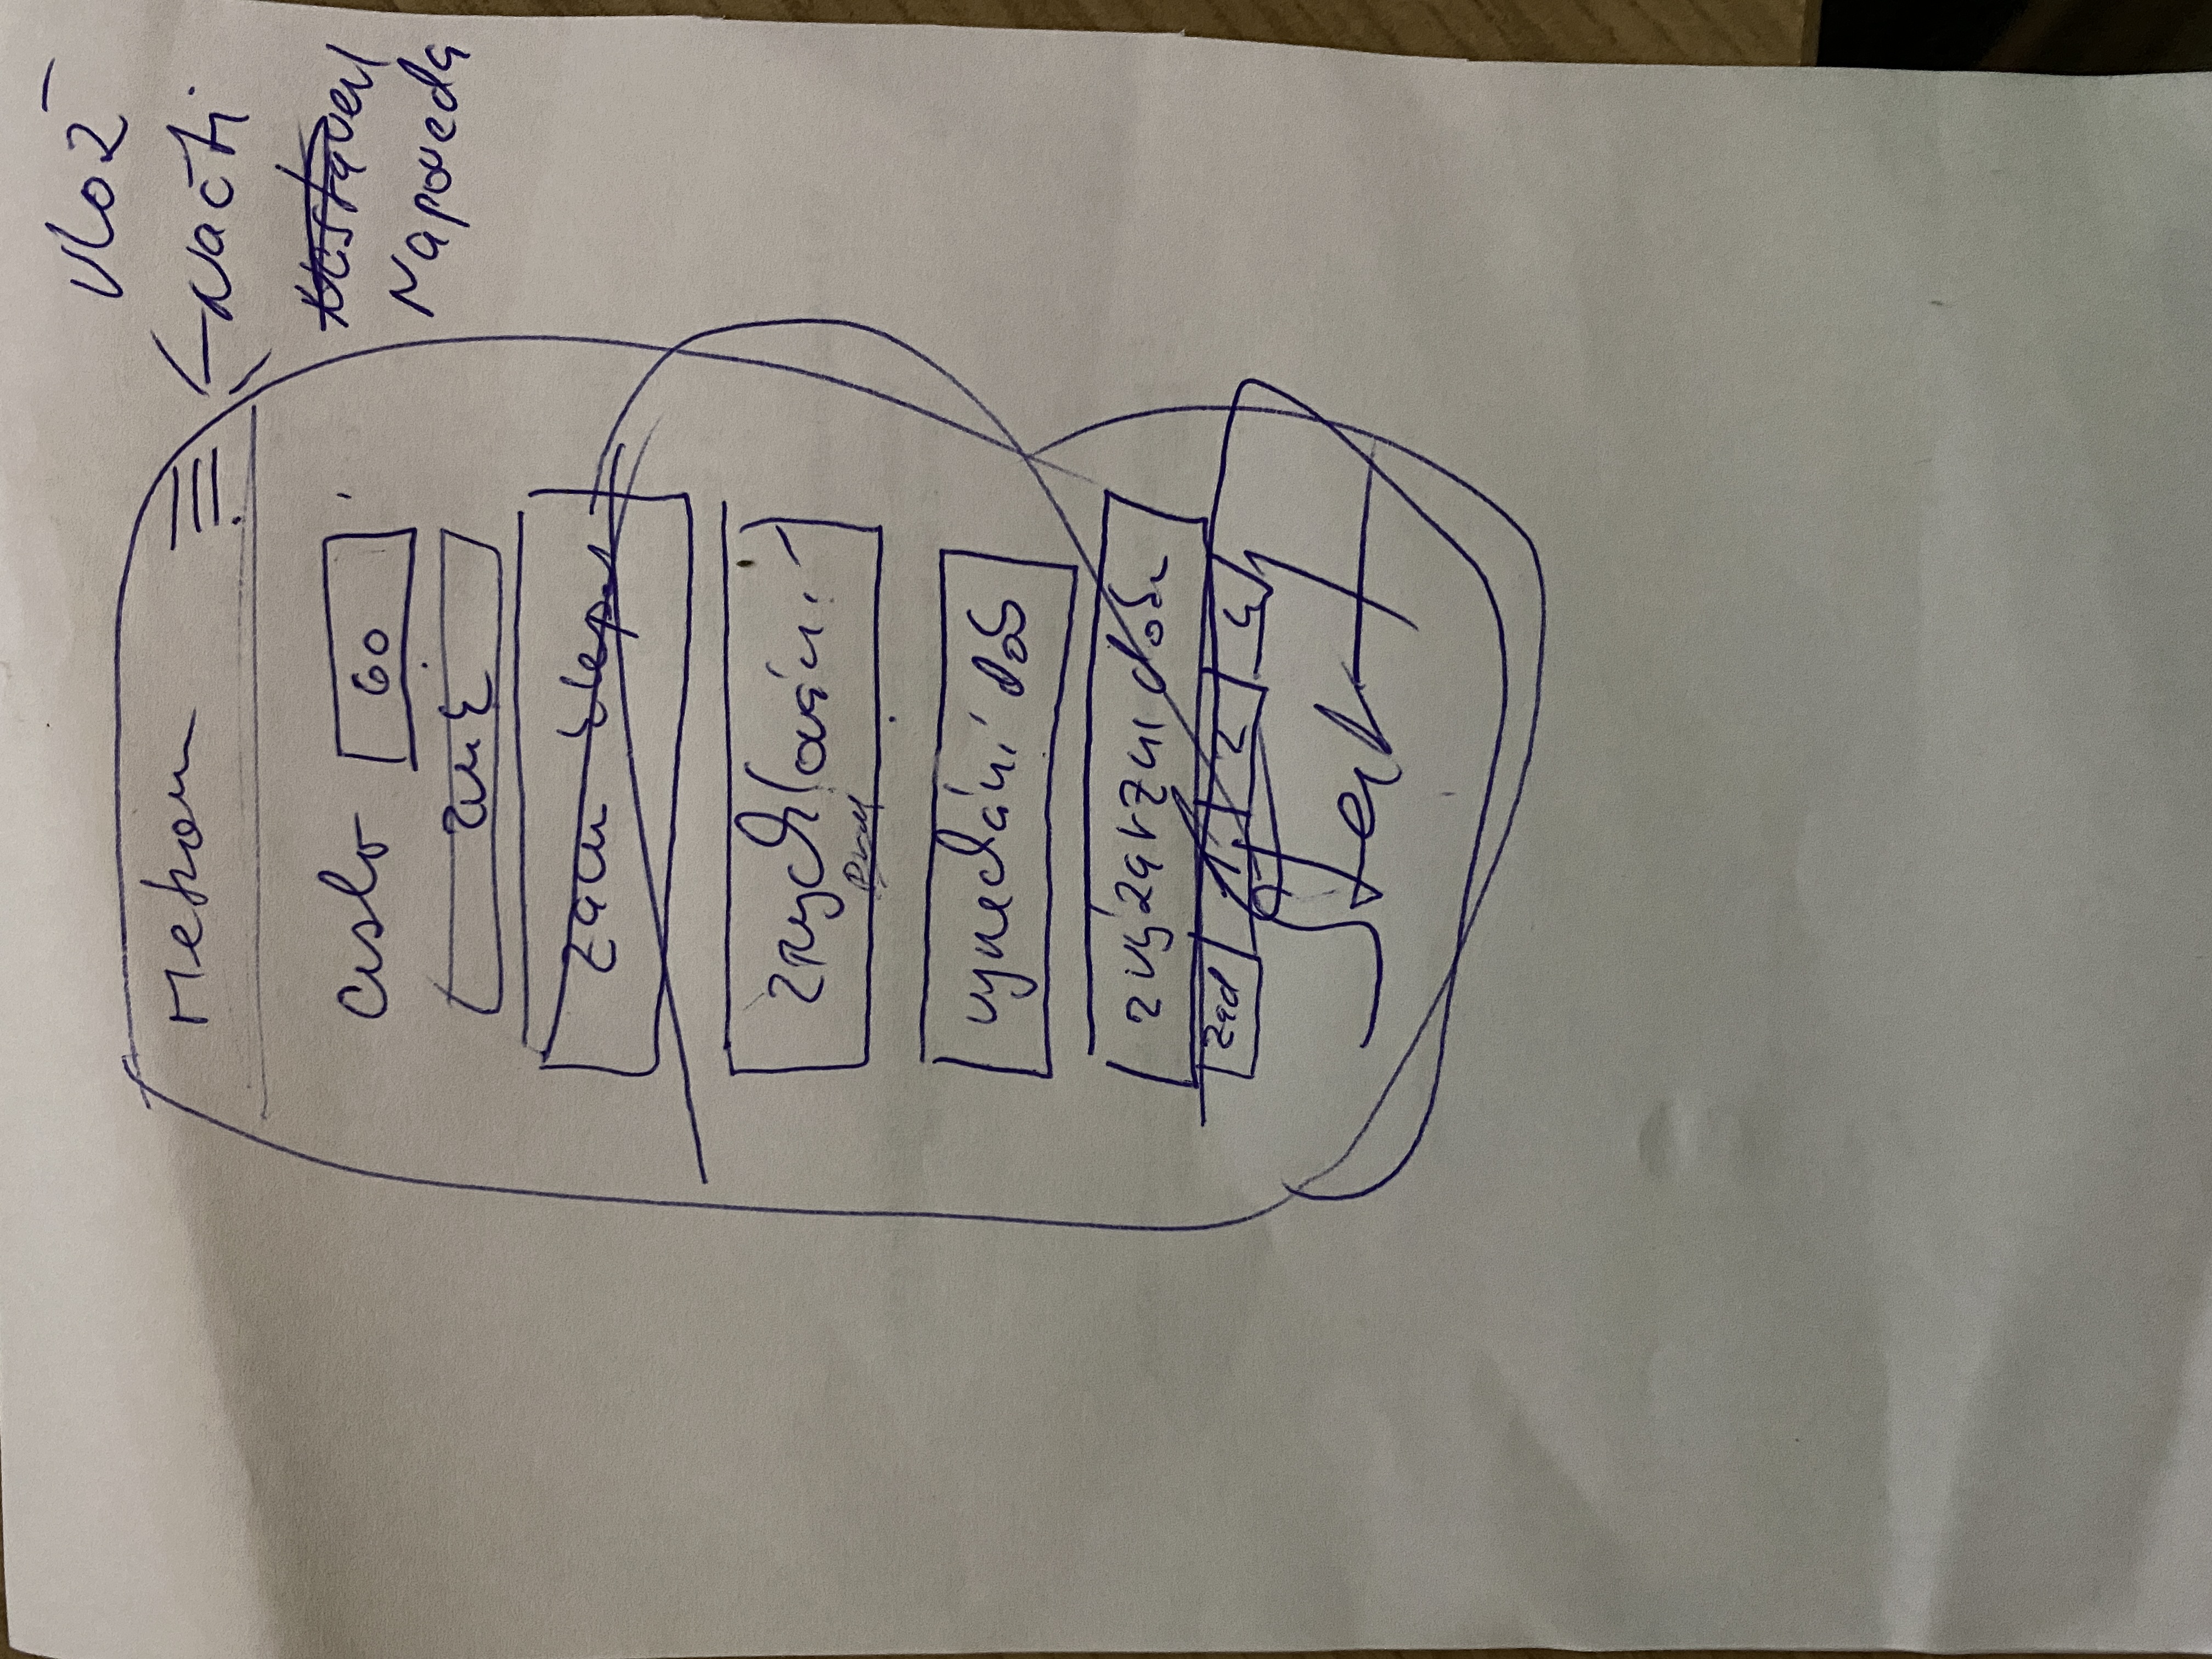 Metrom
Vlož
Načti
Nastavení
Napoveda
cislo 60
zvuk
zrychlování
vynechání dob
zvýraznění doby
zad 1 2 4
Start